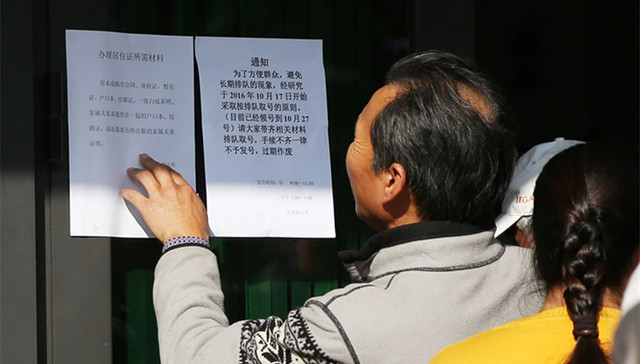 办理居住证所需材料
房本或购房合同、身份证、暂住
证、户口本、结婚证、一张白底彩照。
亲属关系需能在一起的户口本、结
婚证、或有派出所出据的亲属关系
证明。
通知
为了方便群众，避免
长期排队的现象，经研究
于 2016 年 10 月 17 日开始
采取按排队取号的原则，
（目前已经领号到 10 月 27
号）请大家带齐相关材料
排队取号，手续不齐一律
不予发号，过期作废
发号时间：